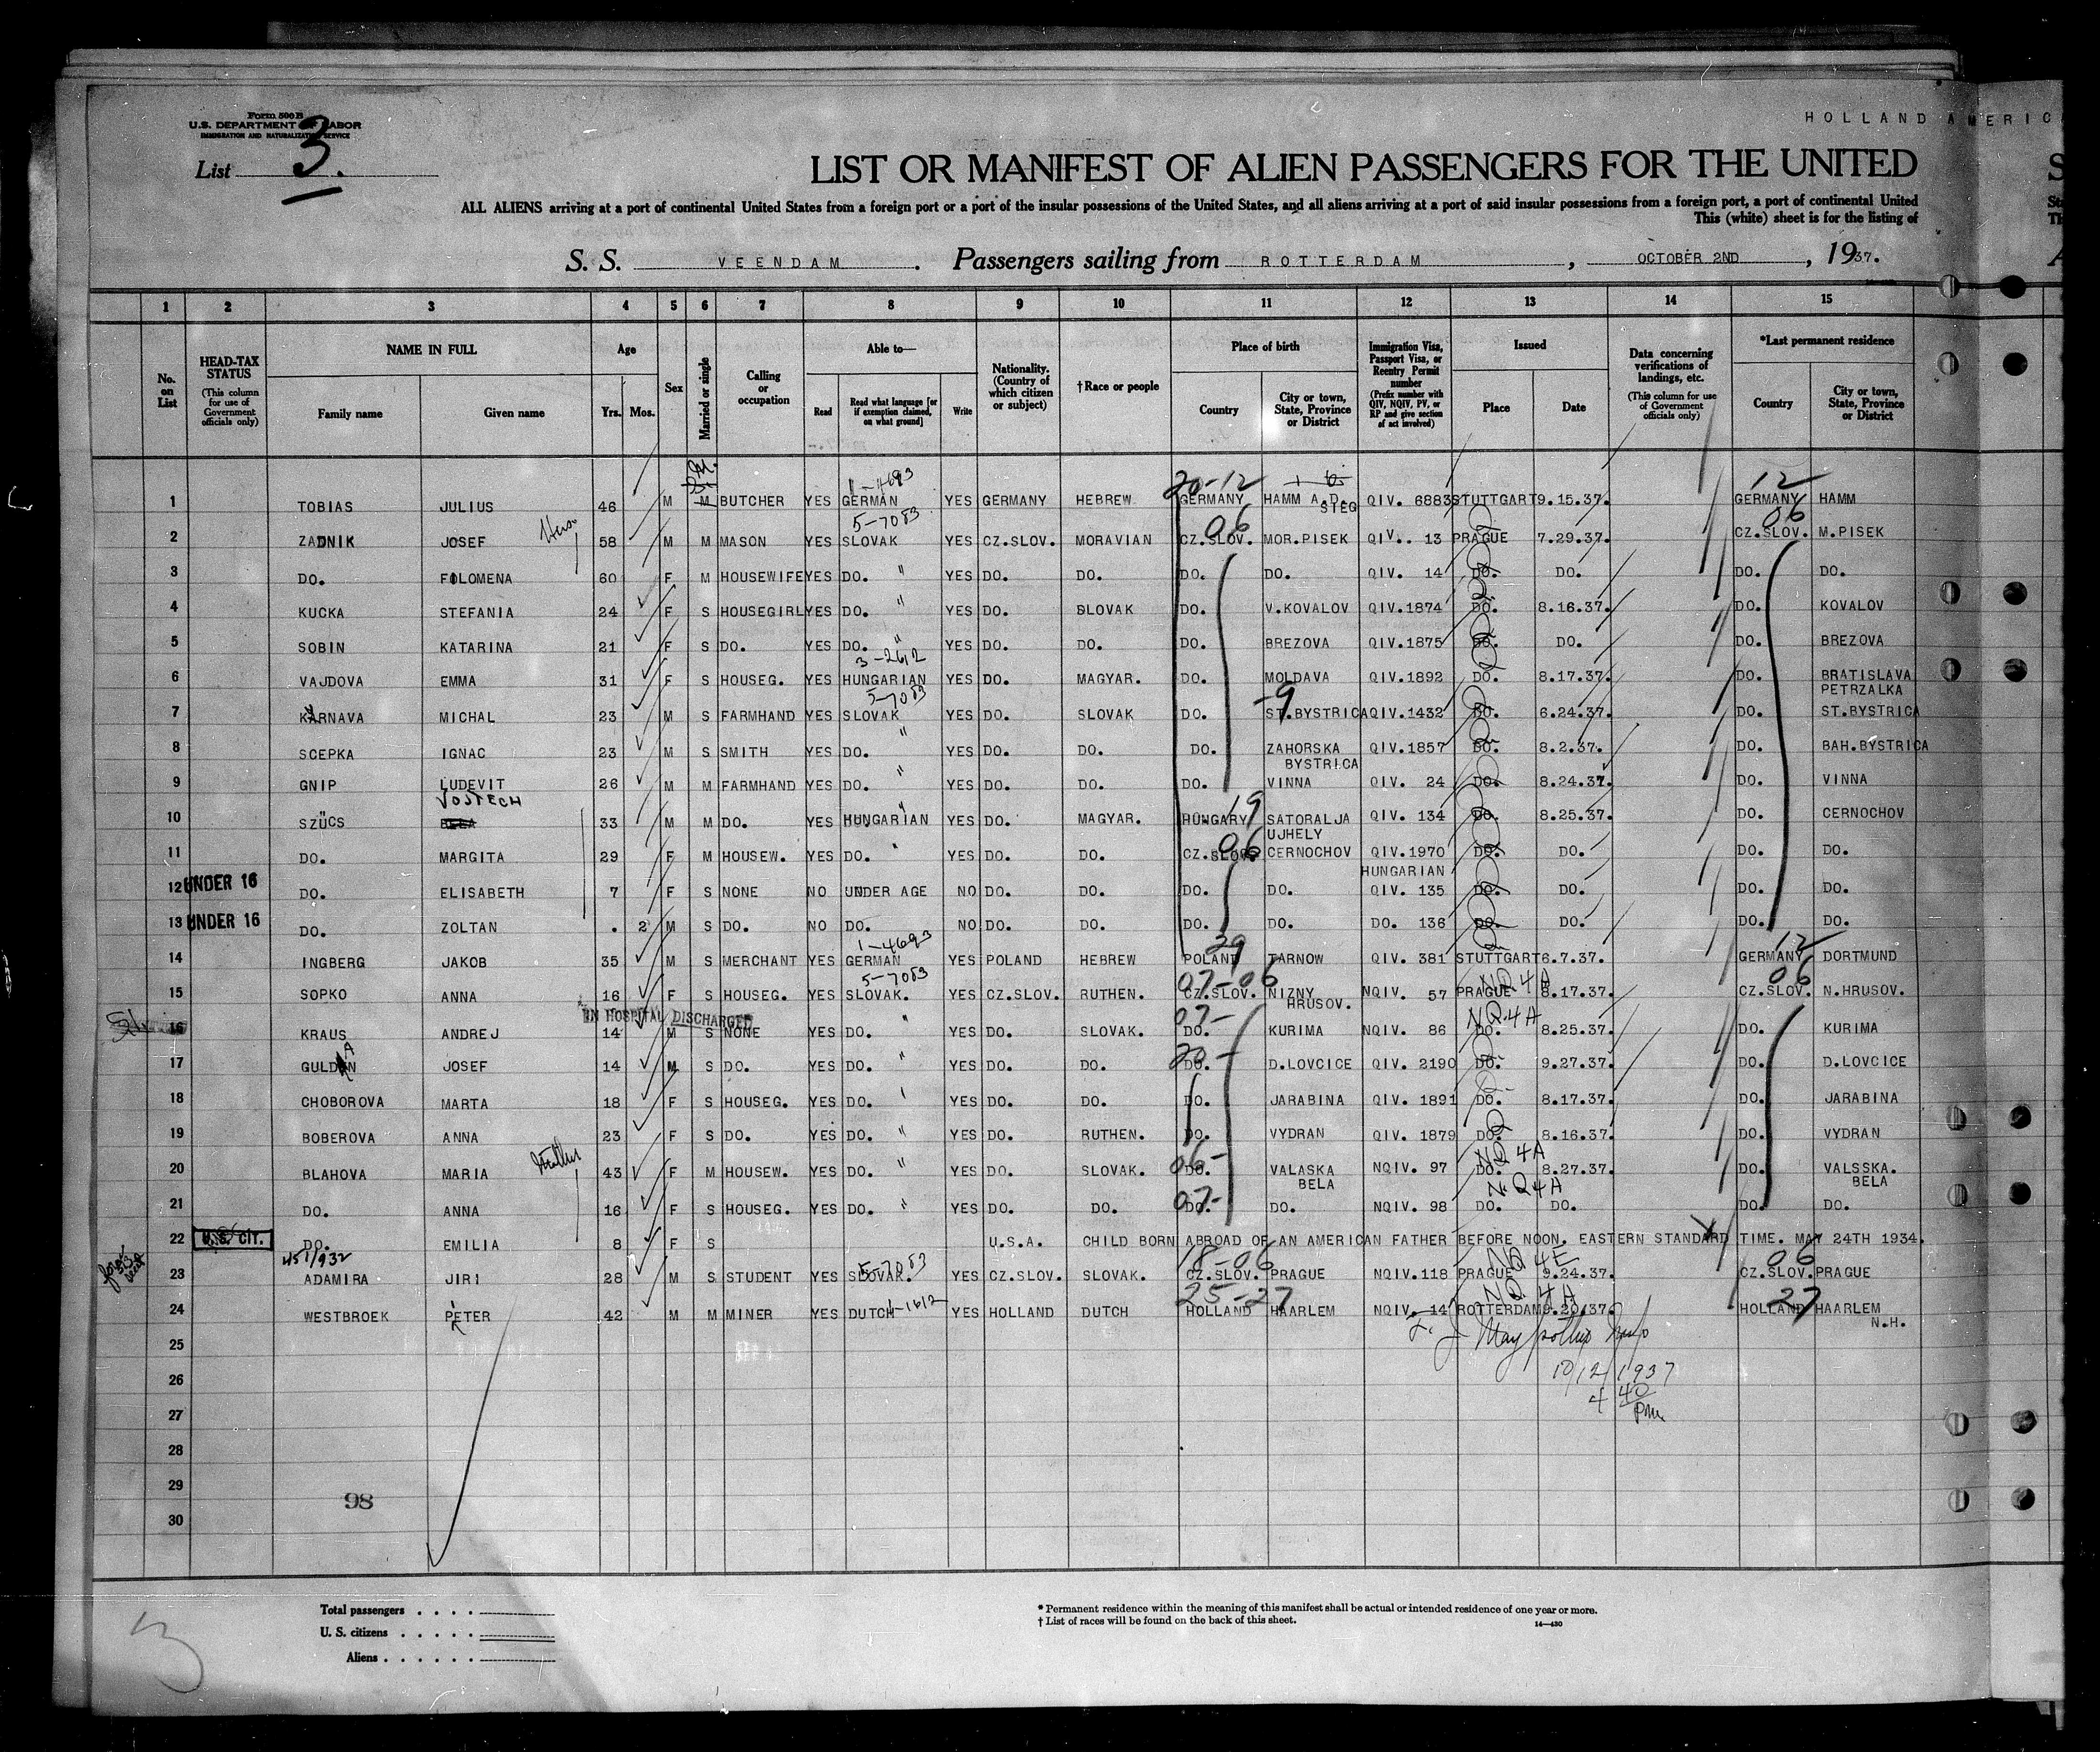 Form 500 B
U.S. DEPARTMENT OF LABOR
IMMIGRATION AND NATURALIZATION SERVICE
HOLLAND AMERICA
List 3.
LIST OR MANIFEST OF ALIEN PASSENGERS FOR THE UNITED
ALL ALIENS arriving at a port of continental United States from a foreign port or a port of the insular possessions of the United States, and all aliens arriving at a port of said insular possessions from a foreign port, a port of continental United
This (white) sheet is for the listing of
S. S. VEENDAM. Passengers sailing from ROTTERDAM, OCTOBER 2ND, 1937.
1 2 3 4 5 6 7 8 9 10 11 12 13 14 15
No. on List
HEAD-TAX STATUS (This column for use of Government officials only)
NAME IN FULL
Family name
Given name
Age
Yrs. Mos.
Sex
Married or single
Calling or occupation
Able to—
Read
Read what language [or if exemption claimed, on what ground]
Write
Nationality. (Country of which citizen or subject)
†Race or people
Place of birth
Country
City or town, State, Province or District
Immigration Visa, Passport Visa, or Reentry Permit number (Prefix number with QIV, NQIV, PV, or RP and give section of act involved)
Issued
Place
Date
Data concerning verifications of landings, etc. (This column for use of Government officials only)
*Last permanent residence
Country
City or town, State, Province or District
1-4693 20-12 12
1 TOBIAS JULIUS 46 M M BUTCHER YES GERMAN YES GERMANY HEBREW GERMANY HAMM A.D. SIEG QIV. 6883 STUTTGART 9.15.37. GERMANY HAMM
5-7083 06 06
2 ZADNIK JOSEF 58 M M MASON YES SLOVAK YES CZ.SLOV. MORAVIAN CZ.SLOV. MOR.PISEK QIV. 13 PRAGUE 7.29.37. CZ.SLOV. M.PISEK
3 DO. FILOMENA 60 F M HOUSEWIFE YES DO. " YES DO. DO. DO. DO. QIV. 14 DO. DO. DO. DO.
4 KUCKA STEFANIA 24 F S HOUSEGIRL YES DO. " YES DO. SLOVAK DO. V.KOVALOV QIV.1874 DO. 8.16.37. DO. KOVALOV
5 SOBIN KATARINA 21 F S DO. YES DO. " YES DO. DO. DO. BREZOVA QIV.1875 DO. DO. DO. BREZOVA
3-2612
6 VAJDOVA EMMA 31 F S HOUSEG. YES HUNGARIAN YES DO. MAGYAR. DO. MOLDAVA QIV.1892 DO. 8.17.37. DO. BRATISLAVA PETRZALKA
5-7083 -9
7 KYRNAVA MICHAL 23 M S FARMHAND YES SLOVAK YES DO. SLOVAK DO. ST.BYSTRICA QIV.1432 DO. 6.24.37. DO. ST.BYSTRICA
8 SCEPKA IGNAC 23 M S SMITH YES DO. " YES DO. DO. DO. ZAHORSKA BYSTRICA QIV.1857 DO. 8.2.37. DO. BAH.BYSTRICA
9 GNIP LUDEVIT 26 M M FARMHAND YES DO. " YES DO. DO. DO. VINNA QIV. 24 DO. 8.24.37. DO. VINNA
VOJTECH 19
10 SZÜCS 33 M M DO. YES HUNGARIAN YES DO. MAGYAR. HUNGARY SATORALJA UJHELY QIV. 134 DO. 8.25.37. DO. CERNOCHOV
06
11 DO. MARGITA 29 F M HOUSEW. YES DO. " YES DO. DO. CZ.SLOV. CERNOCHOV QIV.1970 DO. DO. DO. DO.
HUNGARIAN
12 UNDER 16 DO. ELISABETH 7 F S NONE NO UNDER AGE NO DO. DO. DO. DO. QIV. 135 DO. DO. DO. DO.
13 UNDER 16 DO. ZOLTAN . 2 M S DO. NO DO. NO DO. DO. DO. DO. DO. 136 DO. DO. DO. DO.
1-4693 12
14 INGBERG JAKOB 35 M S MERCHANT YES GERMAN YES POLAND HEBREW POLAND TARNOW QIV. 381 STUTTGART 6.7.37. GERMANY DORTMUND
5-7083 07-06 NQ4A 06
15 SOPKO ANNA 16 F S HOUSEG. YES SLOVAK. YES CZ.SLOV. RUTHEN. CZ.SLOV. NIZNY HRUSOV. NQIV. 57 PRAGUE 8.17.37. CZ.SLOV. N.HRUSOV.
IN HOSPITAL DISCHARGED 07- NQ4A
16 KRAUS ANDREJ 14 M S NONE YES DO. " YES DO. SLOVAK. DO. KURIMA NQIV. 86 DO. 8.25.37. DO. KURIMA
A 20-
17 GULDAN JOSEF 14 M S DO. YES DO. " YES DO. DO. DO. D.LOVCICE QIV. 2190 DO. 9.27.37. DO. D.LOVCICE
18 CHOBOROVA MARTA 18 F S HOUSEG. YES DO. YES DO. DO. DO. JARABINA QIV. 1891 DO. 8.17.37. DO. JARABINA
19 BOBEROVA ANNA 23 F S DO. YES DO. " YES DO. RUTHEN. DO. VYDRAN QIV. 1879 DO. 8.16.37. DO. VYDRAN
06- NQ4A
20 BLAHOVA MARIA 43 F M HOUSEW. YES DO. " YES DO. SLOVAK. DO. VALASKA BELA NQIV. 97 DO. 8.27.37. DO. VALSSKA. BELA
07- NQ4A
21 DO. ANNA 16 F S HOUSEG. YES DO. " YES DO. DO. DO. DO. NQIV. 98 DO. DO. DO. DO.
22 U.S. CIT. DO. EMILIA 8 F S U.S.A. CHILD BORN ABROAD OF AN AMERICAN FATHER BEFORE NOON, EASTERN STANDARD TIME. MAY 24TH 1934.
5-7083 18-06 NQ4E 06
23 ADAMIRA JIRI 28 M S STUDENT YES SLOVAK. YES CZ.SLOV. SLOVAK. CZ.SLOV. PRAGUE NQIV.118 PRAGUE 9.24.37. CZ.SLOV. PRAGUE
1-1612 25-27 NQ4A 27
24 WESTBROEK PETER 42 M M MINER YES DUTCH YES HOLLAND DUTCH HOLLAND HAARLEM NQIV. 14 ROTTERDAM 9.20.37. HOLLAND HAARLEM N.H.
25
10/12/1937
26
4 40 pm
27
28
29
98
30
3
Total passengers
U. S. citizens
Aliens
* Permanent residence within the meaning of this manifest shall be actual or intended residence of one year or more.
† List of races will be found on the back of this sheet.
14—430